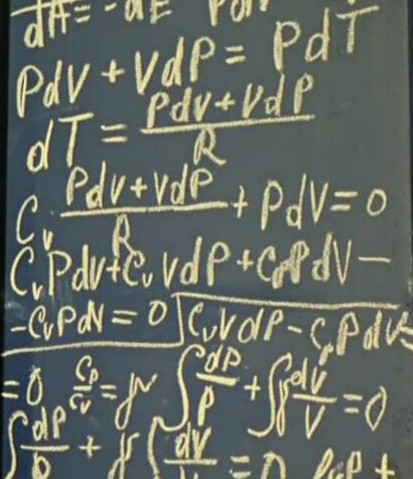 dA = - dE PdV
PdV + VdP = PdT
dT = PdV+VdP / R
Cv PdV+VdP / R + PdV = 0
CvPdV+CvVdP+CpPdV-
-CvPdV = 0 CvVdP-CpPdV=
=0 Cp/Cv=γ ∫dP/P + ∫γ dV/V =0
∫dP/P + γ∫dV/V = 0 lnP +